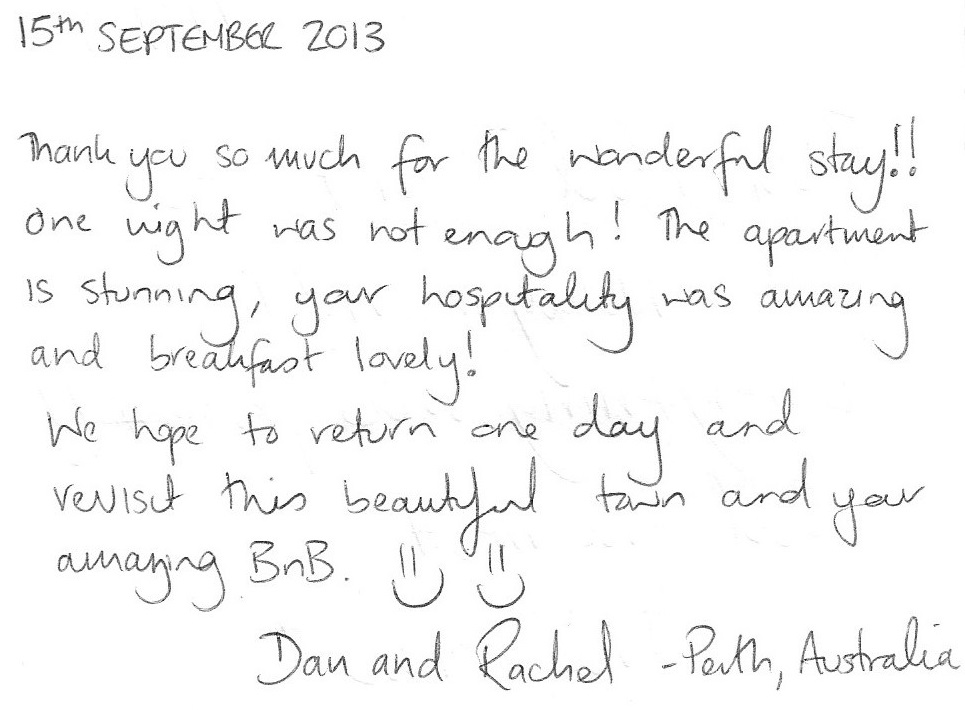 15th SEPTEMBER 2013
Thank you so much for the wonderful stay!!
One night was not enough! The apartment
is stunning, your hospitality was amazing
and breakfast lovely!
We hope to return one day and
revisit this beautiful town and your
amazing BnB. :) :)
Dan and Rachel - Perth, Australia